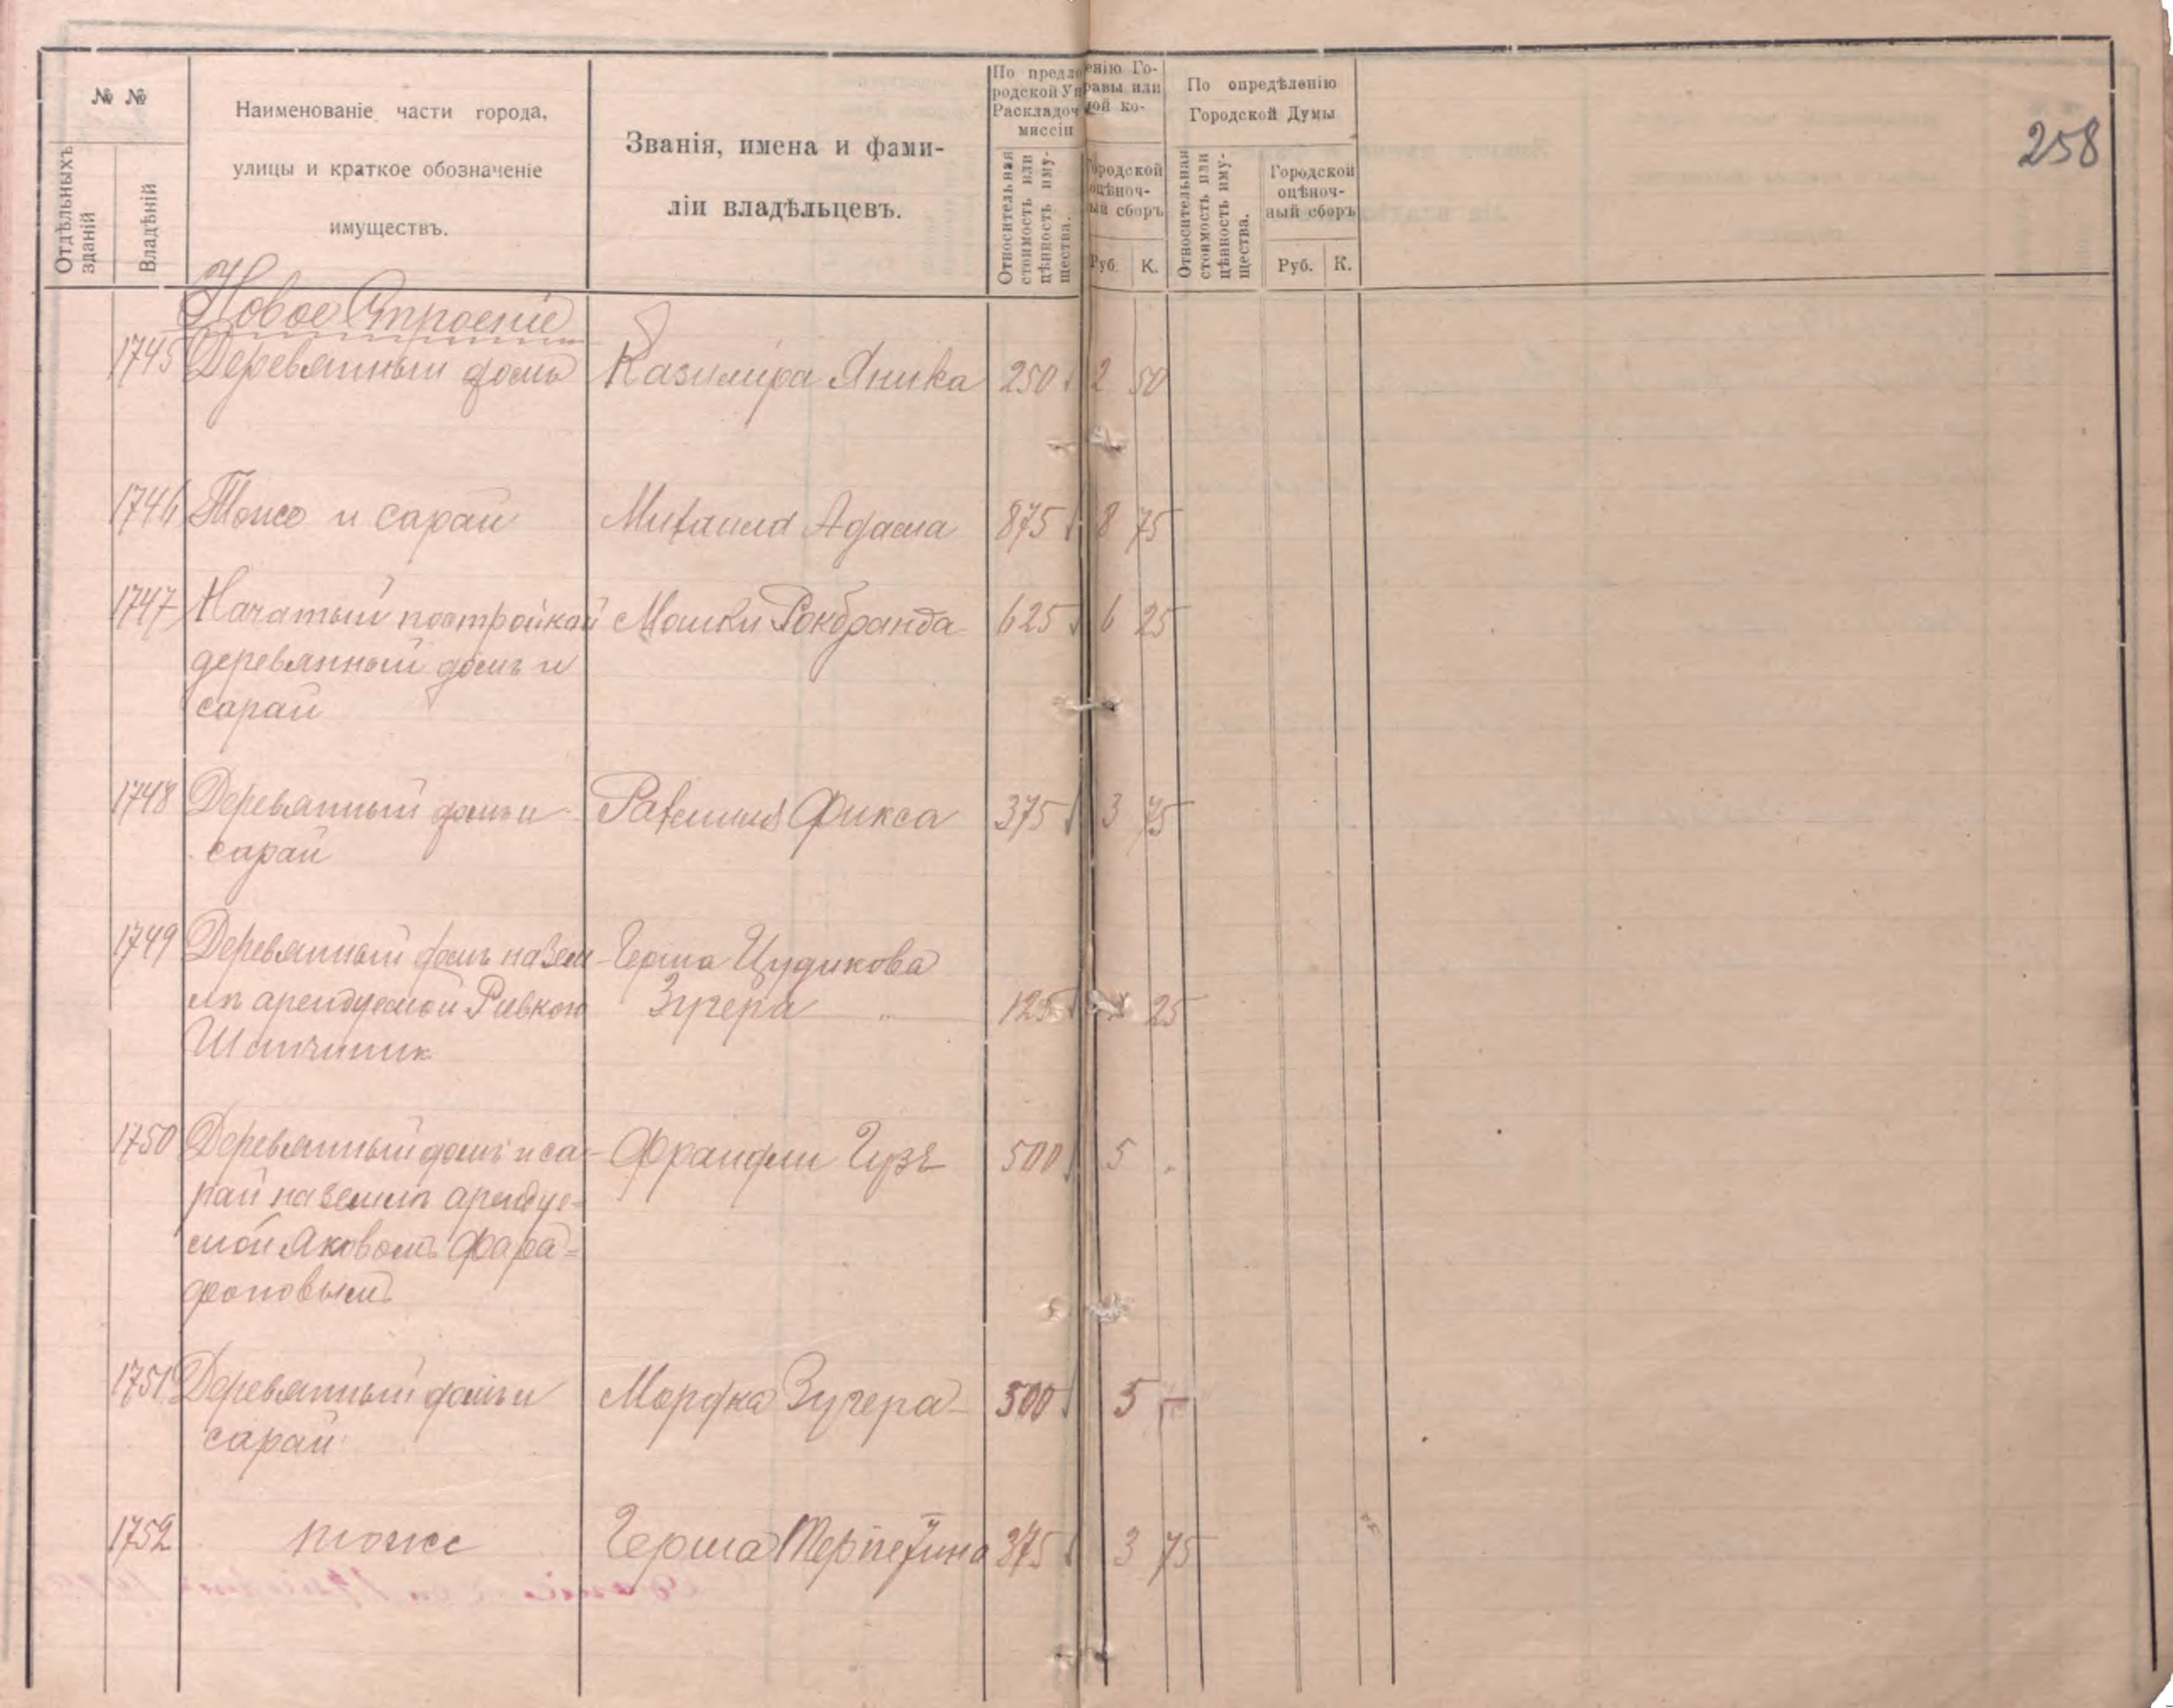 258
№ №
Отдѣльныхъ зданій
Владѣній
Наименованіе части города,
улицы и краткое обозначеніе
имуществъ.
Званія, имена и фами-
ліи владѣльцевъ.
По предло
енію Го-
родской Уп
равы или
Раскладоч
ной ко-
миссіи
Относительная стоимость или цѣнность иму-щества.
Городской
оцѣноч-
ный сборъ
Руб. К.
По опредѣленію
Городской Думы
Относительная стоимость или цѣнность иму-щества.
Городской
оцѣноч-
ный сборъ
Руб. К.
Новое Строеніе
1745 Деревянный домъ Казимира Яника 250 2 50
1746 Тоже и сарай Михаила Адама 875 8 75
1747 Начатый постройкой Мошки Рокбранда 625 6 25
деревянный домъ и
сарай
1748 Деревянный домъ и Рахмиля Фикса 375 3 75
сарай
1749 Деревянный домъ на зем- Герша Цудикова
лѣ арендуемой Ривкою Зугера 125 25
1750 Деревянный домъ и са- Гузъ 500 5
рай на землѣ арендуе-
мой Яковомъ Фара-
фоновымъ
1751 Деревянный домъ и Мордка Зугера 500 5 —
сарай
1752 тоже Герша 375 3 75